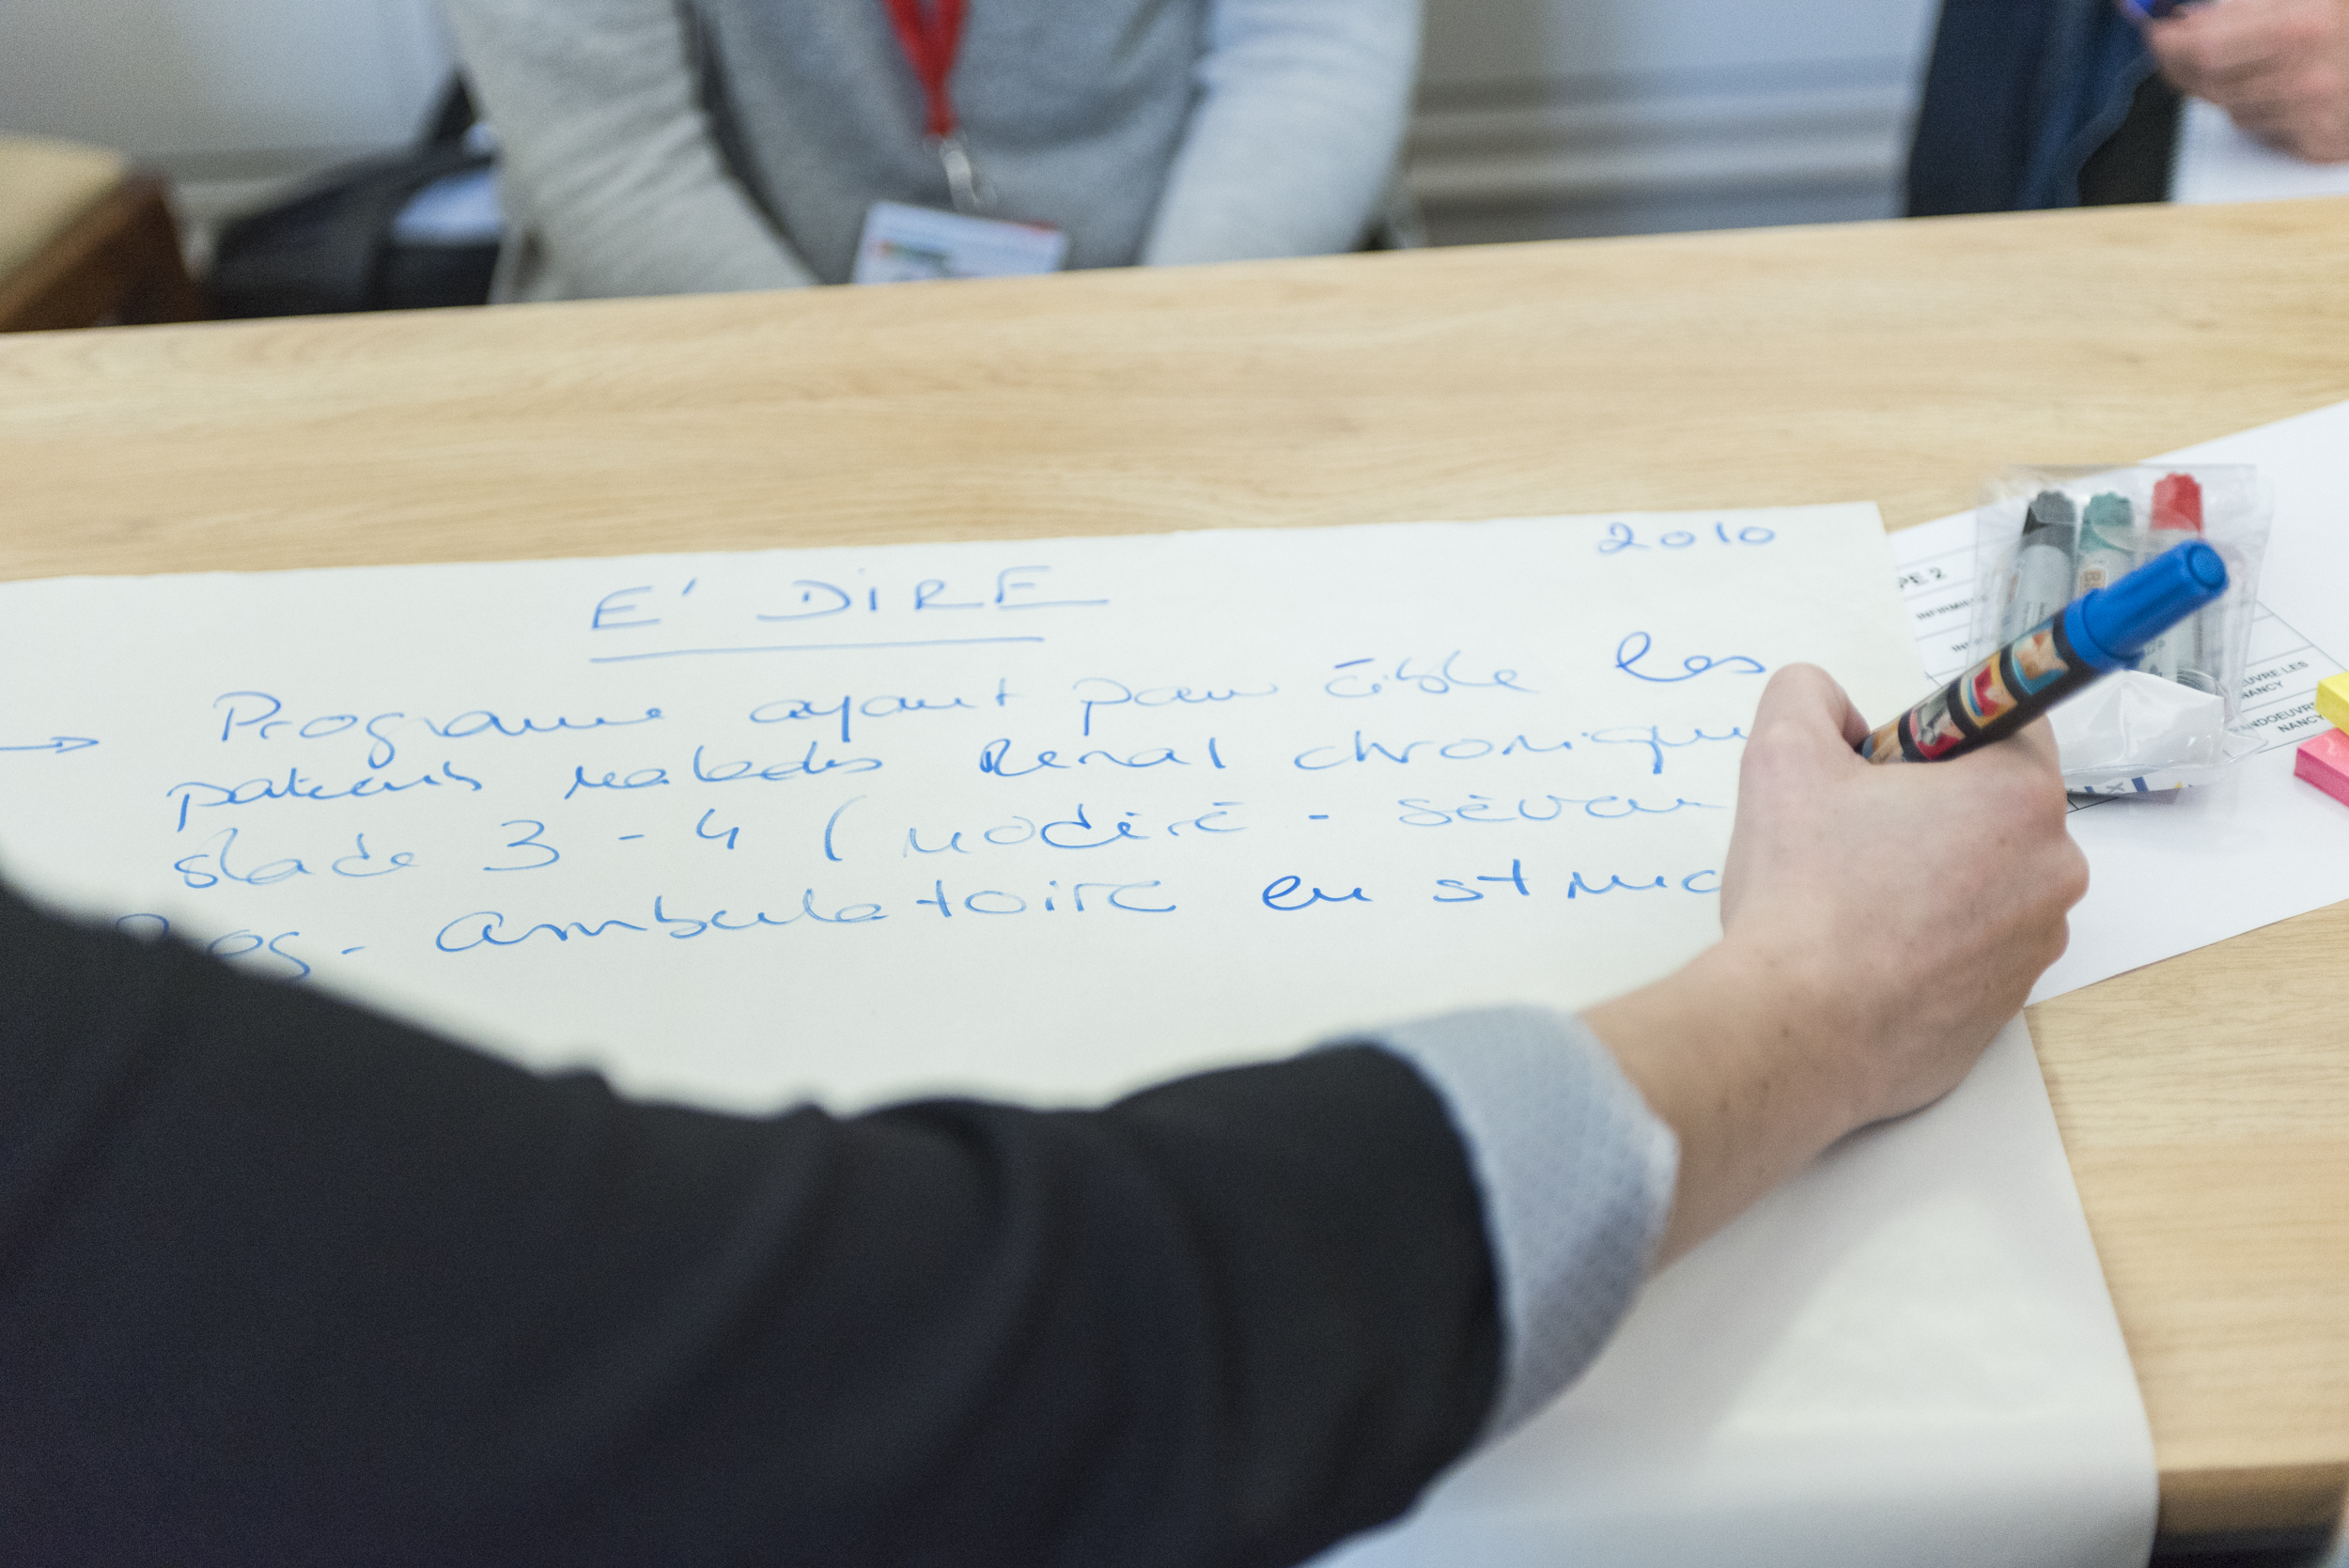 2010
E' DIRE
→ Programme ayant pour cible les
patients malades Renal chronique
stade 3 - 4 (modéré - sévère
Prog - ambulatoire en struc
PE 2
NANCY
NANCY